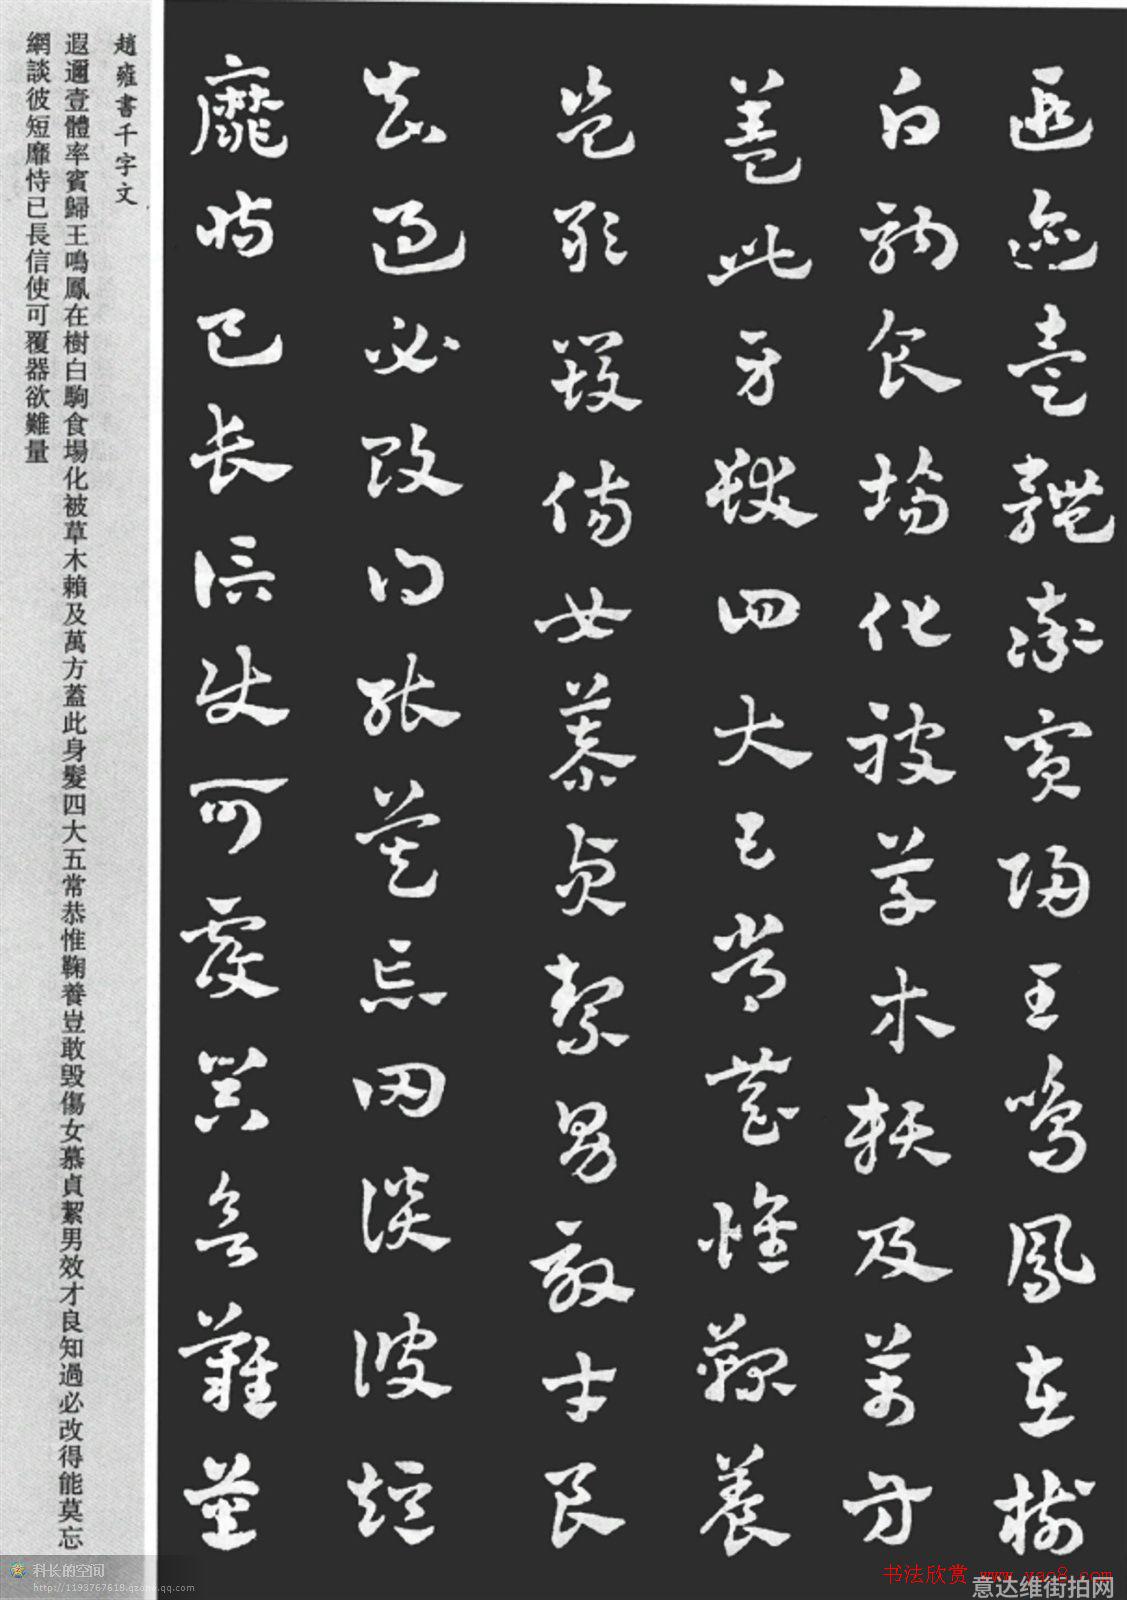 遐邇壹體率賓歸王鳴鳳在樹
白駒食場化被草木賴及萬方
蓋此身髮四大五常恭惟鞠養
豈敢毀傷女慕貞絜男效才良
知過必改得能莫忘罔談彼短
靡恃己長信使可覆器欲難量
趙雍書千字文
遐邇壹體率賓歸王鳴鳳在樹白駒食場化被草木賴及萬方蓋此身髮四大五常恭惟鞠養豈敢毀傷女慕貞絜男效才良知過必改得能莫忘
網談彼短靡恃已長信使可覆器欲難量
科长的空间
http://1193767618.qzone.qq.com
书法欣赏 www.yac8.com
意达维街拍网